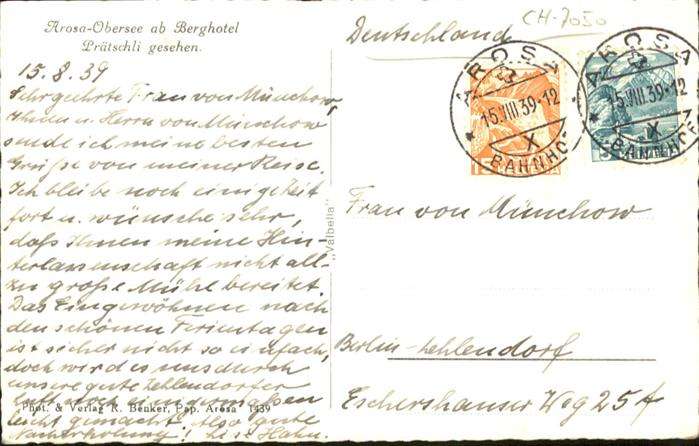 Arosa-Obersee ab Berghotel
Prätschli gesehen.
15.8.39
Sehr geehrte Frau von Münchow,
Ihnen u. Herrn von Münchow
sende ich meine besten
Grüße von meiner Reise.
Ich bleibe noch einige Zeit
fort u. wünsche sehr,
daß Ihnen meine Hin-
terlassenschaft nicht all-
zu große Mühe bereitet.
Das Eingewöhnen nach
den schönen Ferientagen
ist sicher nicht so einfach,
doch wird es uns durch
unsere gute Zehlendorfer
Luft doch einigermaßen
leicht gemacht. Also gute
Nacherholung! Hahn.
Phot. & Verlag R. Benker, Pap. Arosa 1439
"Valbella"
CH-7050
Deutschland
AROSA
15.VIII.39-12
X
BAHNHOF
AROSA
15.VIII.39-12
X
BAHNHOF
Frau von Münchow
Berlin-Zehlendorf
Eschershauser Weg 25